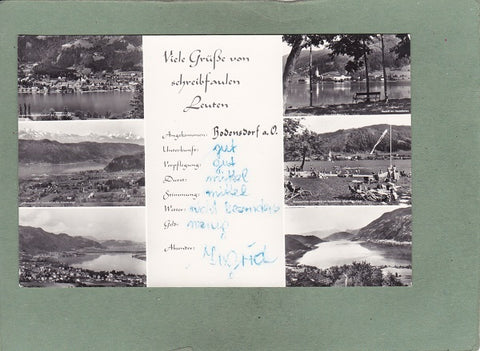 Viele Grüße von
schreibfaulen
Leuten
Angekommen: Bodensdorf a. O.
Unterkunft: gut
Verpflegung: gut
Durst: mittel
Stimmung: mittel
Wetter: nicht besonders
Geld: wenig
Absender: Ingrid